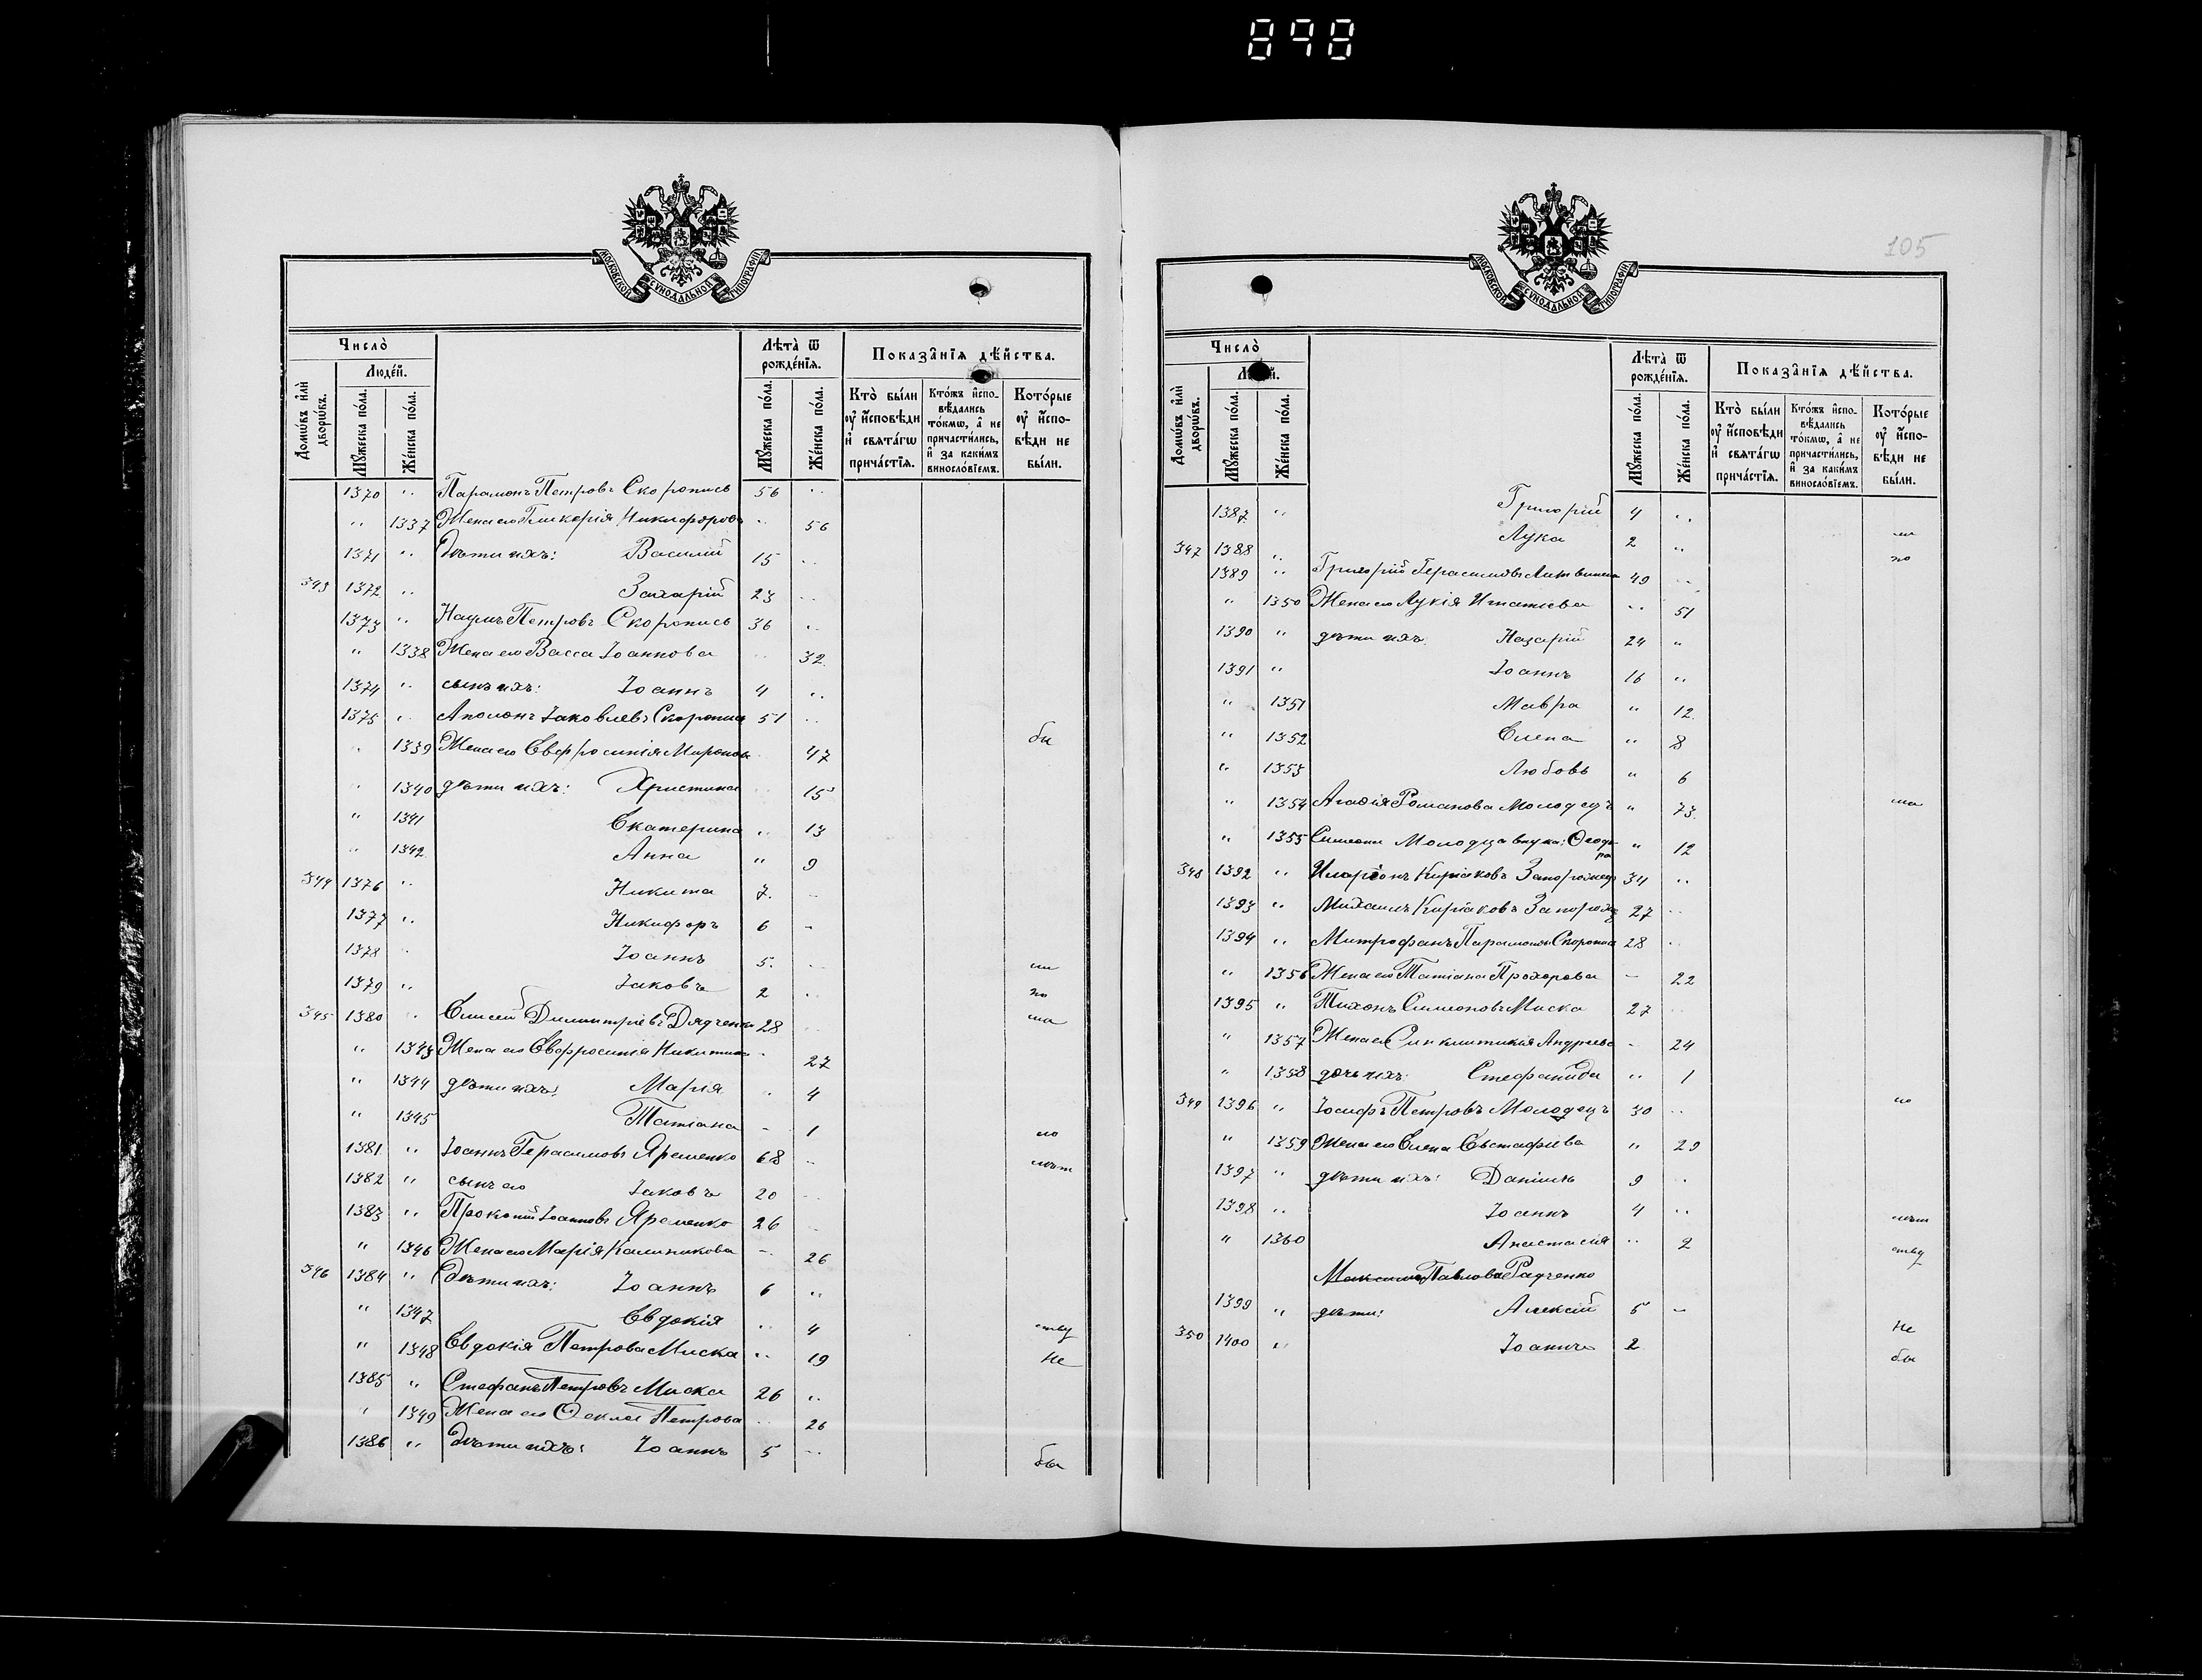 898
МОСКОВСКОЙ СѴНОДАЛЬНОЙ ТИПОГРАФІИ
Число̀
Лѣта̀ ѿ рожде́нїѧ.
Показа̑нїѧ дѣ́йства.
Домѡ́въ и҆лѝ дворѡ́въ.
Люде́й.
Мꙋ́жеска по́ла.
Же́нска по́ла.
Мꙋ́жеска по́ла.
Же́нска по́ла.
Кто̀ бы́ли ᲂу҆ и҆́сповѣди и҆ свѧта́гѡ прича́стїѧ.
Кто́жъ и҆сповѣ́дались то́кмѡ, а҆ не причасти́лись, и҆ за каки́мъ виносло́вїемъ.
Кото́рые ᲂу҆ и҆́сповѣди не бы́ли.
1370 " Парамонъ Петровъ Скоропись 56 "
" 1337 Жена его Гликерія Никифорова " 56
1371 " Дѣти ихъ: Василій 15 "
343 1372 " Захарій 23 "
1373 " Наумъ Петровъ Скоропись 36 "
" 1338 Жена его Васса Іоаннова " 32
1374 " сынъ ихъ: Іоаннъ 4 "
1375 " Аполонъ Іаковлевъ Скоропись 51 "
" 1339 Жена его Евфросинія Миронова " 47 бы
" 1340 дѣти ихъ: Христина " 15
" 1341 Екатерина " 13
" 1342 Анна " 9
344 1376 " Никита 7 "
1377 " Никифоръ 6 "
1378 " Іоаннъ 5 " ли
1379 " Іаковъ 2 " по
345 1380 " Елисей Димитріевъ Дядченко 28 "
" 1343 Жена его Евфросинія Никитина " 27
" 1344 дѣти ихъ: Марія " 4
" 1345 Татіана " 1
1381 " Іоаннъ Герасимовъ Яременко 68 "
1382 " сынъ его Іаковъ 20 "
1383 " Прокопій Іоанновъ Яременко 26 "
" 1346 Жена его Марія Калиникова " 26
346 1384 " Дѣти ихъ: Іоаннъ 6 "
" 1347 Евдокія " 4 ству
" 1348 Евдокія Петрова Миска " 19 Не
1385 " Стефанъ Петровъ Миска 26 "
" 1349 Жена его Ѳекла Петрова " 26
1386 " Дѣти ихъ: Іоаннъ 5 " бы
105
МОСКОВСКОЙ СѴНОДАЛЬНОЙ ТИПОГРАФІИ
Число̀
Лѣта̀ ѿ рожде́нїѧ.
Показа̑нїѧ дѣ́йства.
Домѡ́въ и҆лѝ дворѡ́въ.
Мꙋ́жеска по́ла.
Же́нска по́ла.
Мꙋ́жеска по́ла.
Же́нска по́ла.
Кто̀ бы́ли ᲂу҆ и҆́сповѣди и҆ свѧта́гѡ прича́стїѧ.
Кто́жъ и҆сповѣ́дались то́кмѡ, а҆ не причасти́лись, и҆ за каки́мъ виносло́вїемъ.
Кото́рые ᲂу҆ и҆́сповѣди не бы́ли.
1387 " Григорій 4 " ли
347 1388 " Лука 2 " по
1389 " Григорій Герасимовъ Литвинен 49 "
" 1350 Жена его Лукія Игнатіева " 51
1390 " дѣти ихъ: Назарій 24 "
1391 " Іоаннъ 16 "
" 1351 Мавра " 12
" 1352 Елена " 8
" 1353 Любовь " 6
" 1354 Агафія Романова Молодецъ " 73
" 1355 Симеона Молодца внука: Ѳеодора " 12
348 1392 " Иларіонъ Киріаковъ Запорожец 34 "
1393 " Михаилъ Киріаковъ Запорожц 27 "
1394 " Митрофанъ Парамоновъ Скоропись 28 "
" 1356 Жена его Татіана Прохорова " 22
1395 " Тихонъ Симеоновъ Миска 27 "
" 1357 Жена его Синклитикія Андреева " 24
" 1358 дочь ихъ: Стефанида " 1
349 1396 " Іосифъ Петровъ Молодецъ 30 "
" 1359 Жена его Елена Евстафіева " 29
1397 " дѣти ихъ: Даніилъ 9 "
1398 " Іоаннъ 4 "
" 1360 Анастасія " 2 ству
Максима Павлова Радченко
1399 " дѣти: Алексій 5 " Не
350 1400 " Іоаннъ 2 бы